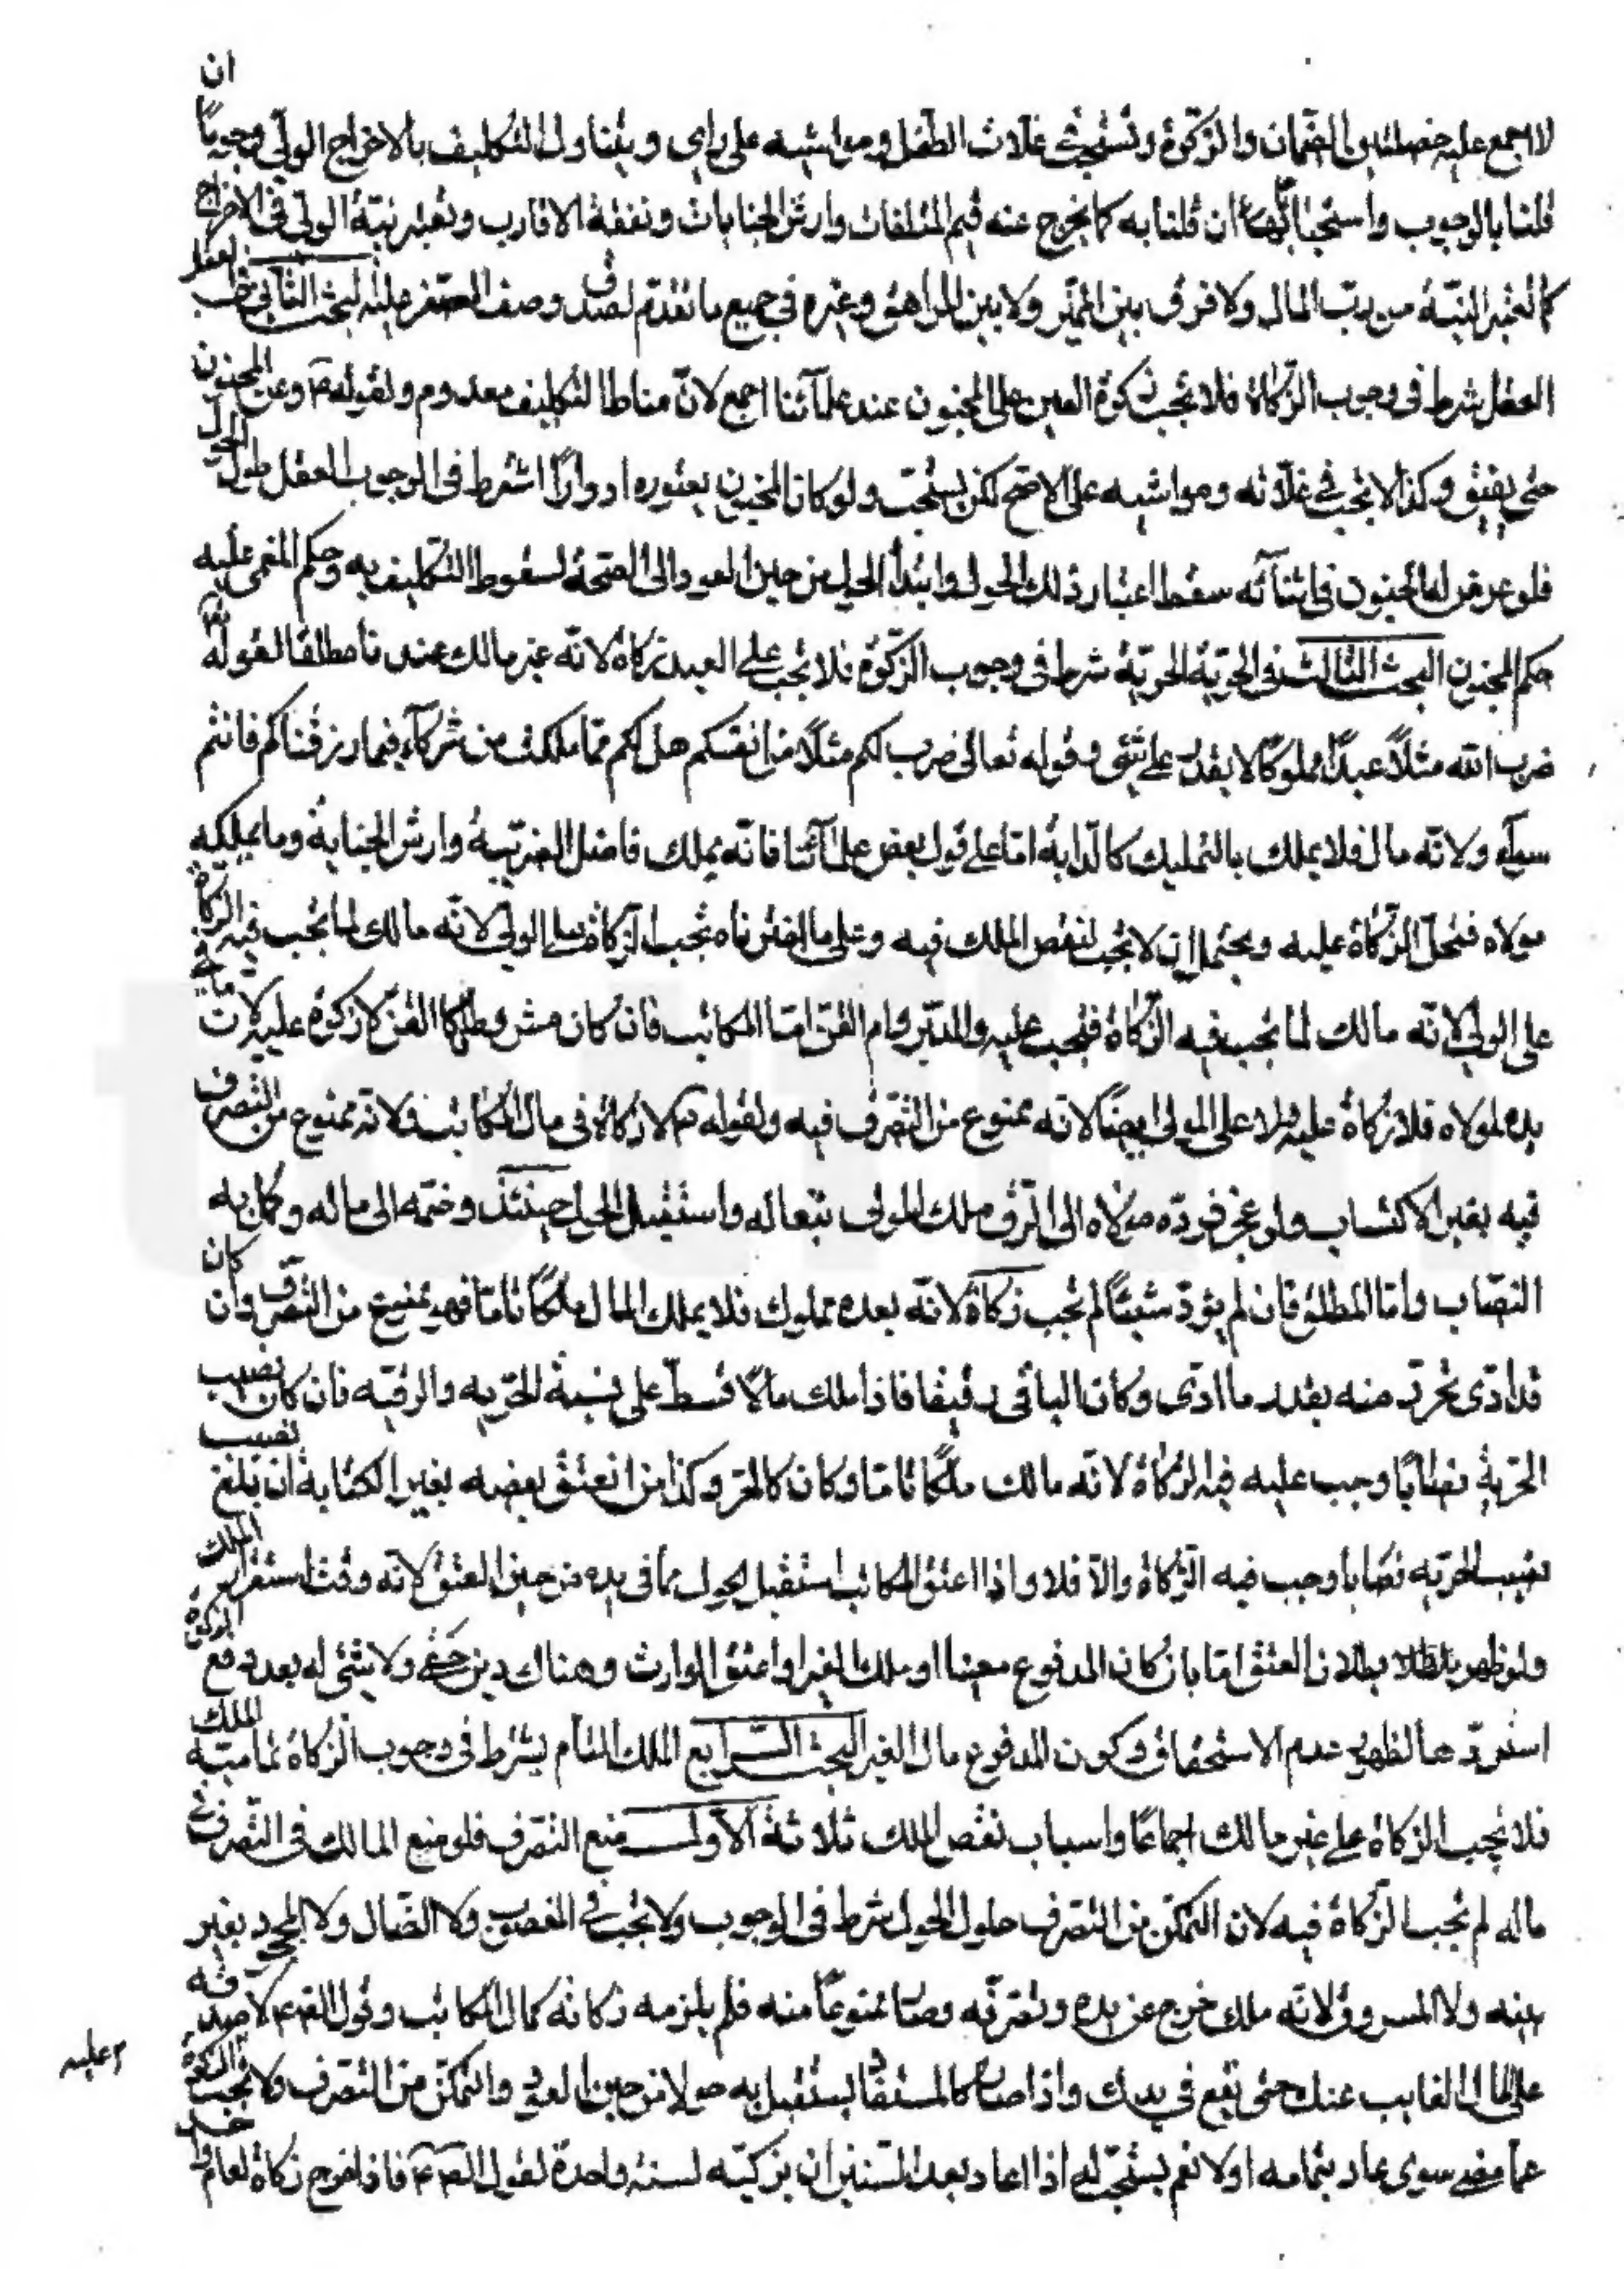 لا اجمع عليه خصلتين الضمان والزكوة وتستحب غلات الطفل ومواشيه على راي ويتناول التكليف بالاخراج الولي وجوبا ان
قلنا بالوجوب واستحبابا ان قلنا به كما يخرج عنه قيم المتلفات وارش الجنايات ونفقة الاقارب وتعتبر نية الولي في الاخراج
كما تعتبر النية من رب المال ولا فرق بين المميز ولا بين المراهق وغيره في جميع ما تقدم لصدق وصف الصغر عليه البحث الثاني في العقل
العقل شرط في وجوب الزكاة فلا تجب زكوة العين على المجنون عند علمآئنا اجمع لان مناط التكليف معدوم ولقوله ع وعن المجنون
حتى يفيق وكذا لا تجب في غلاته ومواشيه على الاصح لكن يستحب ولو كان المجنون يعتوره ادوارا اشترط في الوجوب العقل طول الحول
فلو عرض له الجنون في اثنآئه سقط اعتبار ذلك الحول وابتدأ الحول من حين العود الى الصحة لسقوط التكليف به وحكم المغمى عليه
حكم المجنون البحث الثالث في الحرية الحرية شرط في وجوب الزكوة فلا تجب على العبد زكاة لانه غير مالك عندنا مطلقا لقوله تعالى
ضرب الله مثلا عبدا مملوكا لا يقدر على شئ وقوله تعالى ضرب لكم مثلا من انفسكم هل لكم مما ملكت من شركآء فيما رزقناكم فانتم
سوآء ولانه مال فلا يملك بالتمليك كالدابة اما على قول بعض علمآئنا فانه يملك فاضل الضريبة وارش الجناية وما يملكه
مولاه فتحل الزكاة عليه ويحتمل ان لا تجب لنقص الملك فيه وعلى ما اخترناه تجب الزكاة على الولي لانه مالك لما تجب فيه الزكاة
على الولي لانه مالك لما تجب فيه الزكاة فتجب عليه والمدبر وام القن اما المكاتب فان كان مشروطا كالقن لا زكوة عليه لان ما في
يده لمولاه فلا زكاة عليه ولا على المولى ايضا لانه ممنوع من التصرف فيه ولقوله ع لا زكاة في مال المكاتب ولانه ممنوع من التصرف
فيه بغير الاكتساب ولو عجز فرده مولاه الى الرق ملك المولى بتعاله واستقبل الحول حينئذ وضمه الى ماله وكمل به
النصاب واما المطلق فان لم يؤد شيئا لم تجب زكاة لانه بعده مملوك فلا يملك المال ملكا تاما فهو ممنوع من التصرف وان كان
قد ادى تحرر منه بقدر ما ادى وكان الباقي رقيقا فاذا ملك مالا قسط على نسبة الحريه والرقيه فان كان نصيب
الحرية نصابا وجب عليه فيه الزكاة لانه مالك ملكا تاما وكان كالحر وكذا من انعتق بعضه بغير الكتابة ان بلغ نصيب
نصيب الحريه نصابا وجب فيه الزكاة والا فلا واذا اعتق المكاتب استقبل الحول بما في يده من حين العتق لانه وقت استقرار الملك
ولو ظهر بطلان العتق اما بان كان المدفوع معيبا او ملك الغير او اعتق الوارث وهناك دين خفي ولا شئ له بعد دفع الزكوة
استردها لظهور عدم الاستحقاق وكون المدفوع مال الغير البحث الرابع الملك التام يشترط في وجوب الزكاة تمامية الملك
فلا تجب الزكاة على غير مالك اجماعا واسباب نقص الملك ثلاثة الاول منع التصرف فلو منع المالك في التصرف في
ماله لم تجب الزكاة فيه لان التمكن من التصرف حلول الحول شرط في الوجوب ولا تجب في المغصوب ولا الضال ولا المجحود بغير
بينه ولا المسروق لانه ملك خرج عن يده وتصرفه وصار ممنوعا منه فلم يلزمه زكاته كمال المكاتب وقول الصع لا صدقه
على المال الغايب عنك حتى يقع في يدك واذا صار كالمستفاد يستقبل به حولا من حين العود والتمكن من التصرف ولا تجب الزكوة
عما مضى سوى عاد بتمامه او لا نعم يستحب له اذا اعاد بعد السنين ان يزكيه لسنة واحدة لقول الصع فاذا خرج زكاة لعام واحد
عليه